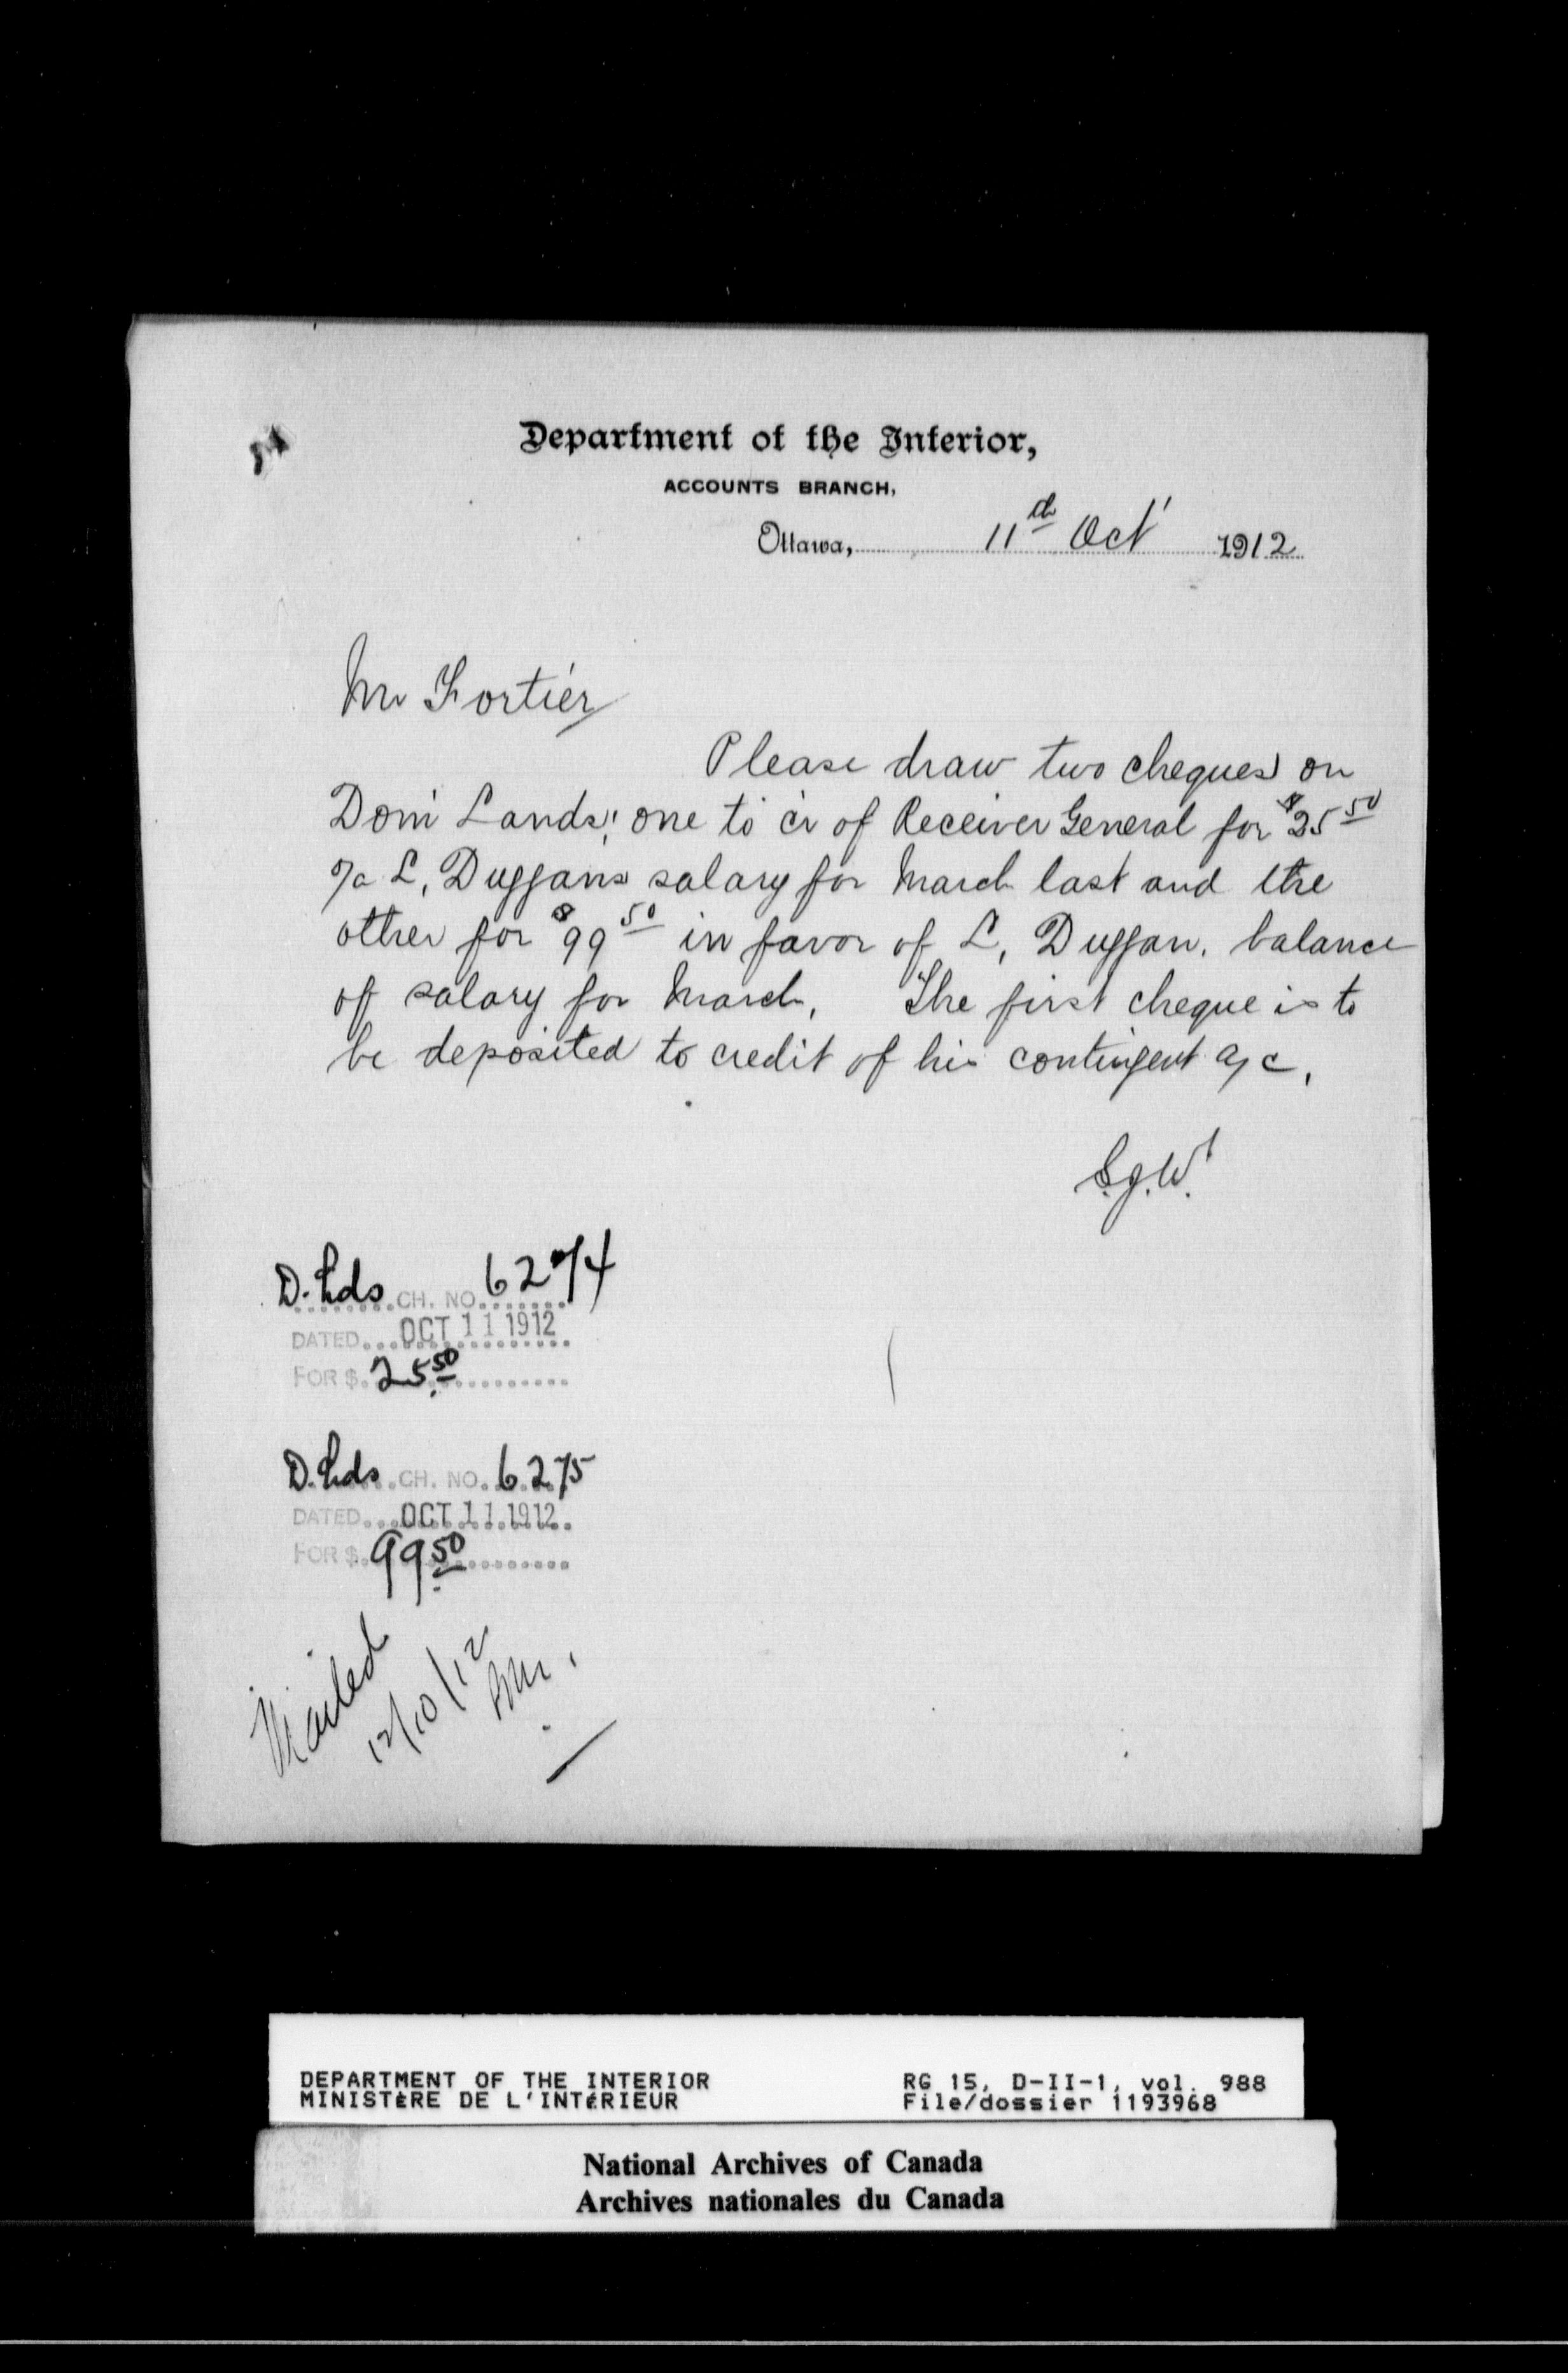 Department of the Interior,
ACCOUNTS BRANCH,
Ottawa, 11th Oct' 1912
Mr Fortier
Please draw two cheques on
Dom Lands; one to cr of Receiver General for $25 50
o/a L, Duggans salary for March last and the
other for $99 50 in favor of L, Duggan. balance
of salary for March. The first cheque is to
be deposited to credit of his contingent a/c.
S.J.W.
D. Lds CH. NO. 6274
DATED OCT 11 1912
FOR $ 25.50
D. Lds CH. NO. 6275
DATED OCT 11 1912
FOR $ 99.50
Mailed
12/10/12
DEPARTMENT OF THE INTERIOR
MINISTÈRE DE L'INTÉRIEUR
RG 15, D-II-1, vol. 988
File/dossier 1193968
National Archives of Canada
Archives nationales du Canada